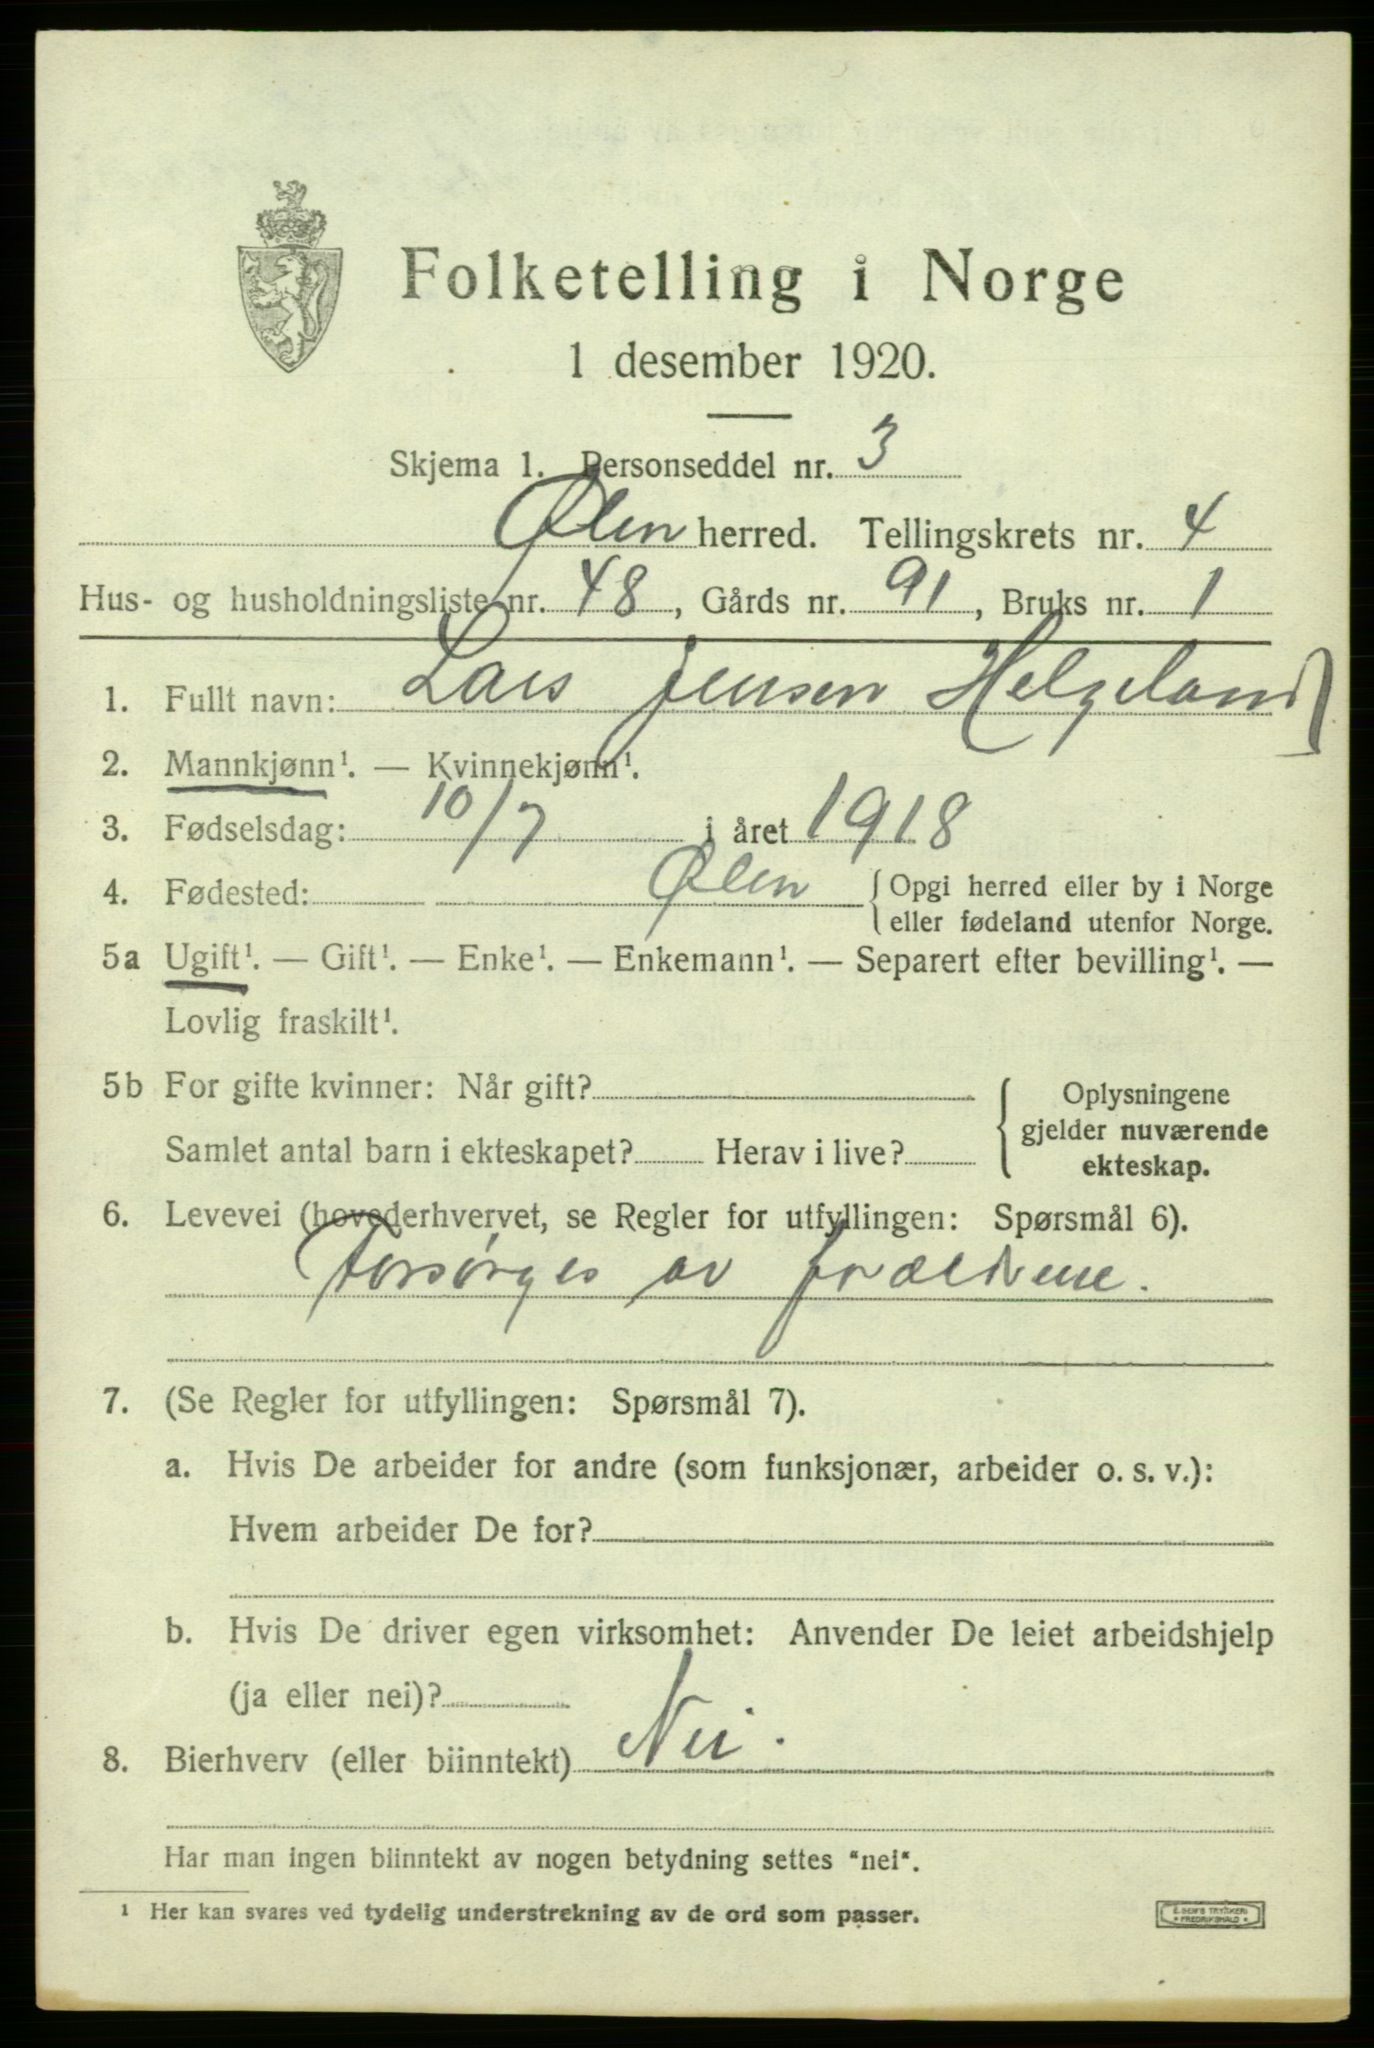 Folketelling i Norge
1 desember 1920.
Skjema 1. Personseddel nr. 3
Ølen herred. Tellingskrets nr. 4
Hus- og husholdningsliste nr. 48, Gårds nr. 91, Bruks nr. 1
1. Fullt navn: Lars Jensen Helgeland
2. Mannkjønn¹. — Kvinnekjønn¹.
3. Fødselsdag: 10/7 i året 1918
4. Fødested: Ølen { Opgi herred eller by i Norge
eller fødeland utenfor Norge.
5a Ugift¹. — Gift¹. — Enke¹. — Enkemann¹. — Separert efter bevilling¹. —
Lovlig fraskilt¹.
5b For gifte kvinner: Når gift? { Oplysningene
gjelder nuværende
Samlet antal barn i ekteskapet? Herav i live?
ekteskap.
6. Levevei (hovederhvervet, se Regler for utfyllingen: Spørsmål 6).
Forsørges av forældrene.
7. (Se Regler for utfyllingen: Spørsmål 7).
a. Hvis De arbeider for andre (som funksjonær, arbeider o. s. v.):
Hvem arbeider De for?
b. Hvis De driver egen virksomhet: Anvender De leiet arbeidshjelp
(ja eller nei)?
8. Bierhverv (eller biinntekt) Nei.
Har man ingen biinntekt av nogen betydning settes "nei".
¹ Her kan svares ved tydelig understrekning av de ord som passer.
E. SEM'S TRYKKERI
FREDRIKSHALD